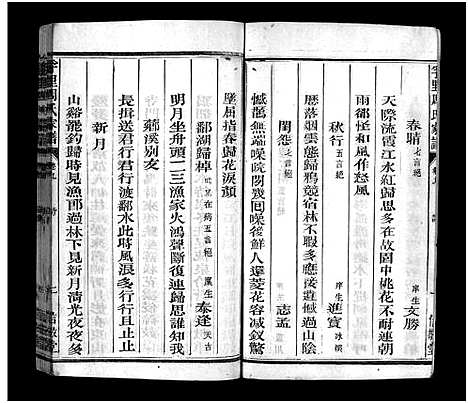 春晴 七言絕 庠生 文勝
天際流霞江水紅歸思多在故園中桃花不斷連朝
雨都怪和風作愁風
秋行 五言絕 庠生 進寶
歷落烟雲態歸鴉競宿林不暇多應接遺憾過山陰
閨怨 七言絕 志孟
憾鵲無端噪院閉幾回噪後鮮人還菱花容減釵驚
墜屈指春歸花淚頻
鄱湖歸棹 五言絕 庠生 泰逢
明月坐舟頭一三漁家火鴻聲斷復連歸思誰知我
薌溪別友
長揖送君行君行渡鄱水此時風浪多行行且止止
新月
山谿罷釣歸時見漁郎過林下見新月清光夜夜多